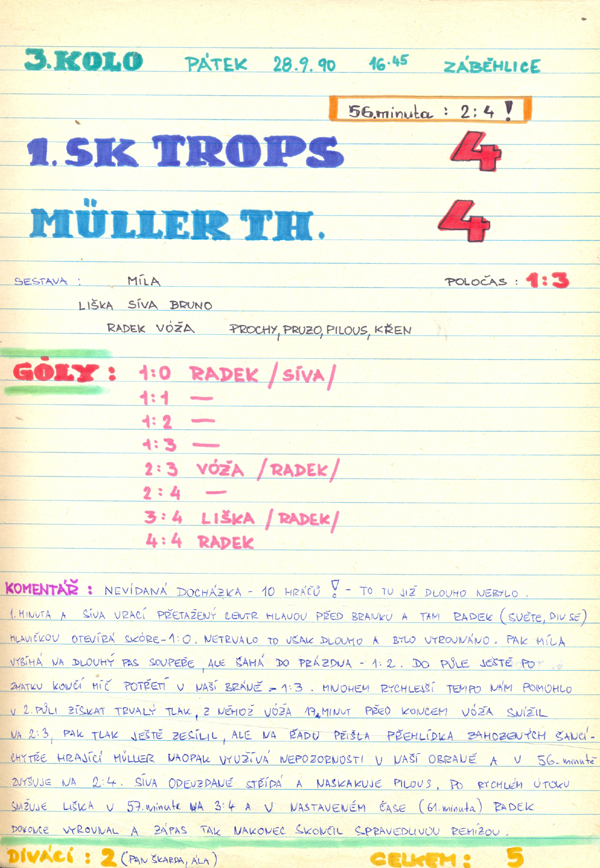 3.KOLO PÁTEK 28.9.90 16.45 ZÁBĚHLICE
56.minuta : 2:4 !
1. SK TROPS 4
MÜLLER TH. 4
SESTAVA : MÍLA POLOČAS : 1:3
LIŠKA SÍVA BRUNO
RADEK VÓŽA PROCHY, PRUZO, PILOUS, KŘEN
GÓLY : 1:0 RADEK /SÍVA/
1:1 —
1:2 —
1:3 —
2:3 VÓŽA /RADEK/
2:4 —
3:4 LIŠKA /RADEK/
4:4 RADEK
KOMENTÁŘ : NEVÍDANÁ DOCHÁZKA - 10 HRÁČŮ ! - TO TU JIŽ DLOUHO NEBYLO.
1. MINUTA A SÍVA VRACÍ PŘETAŽENÝ CENTR HLAVOU PŘED BRANKU A TAM RADEK (SVĚTE, DIV SE)
HLAVIČKOU OTEVÍRÁ SKÓRE - 1:0. NETRVALO TO VŠAK DLOUHO A BYLO VYROVNÁNO. PAK MÍLA
VYBÍHÁ NA DLOUHÝ PAS SOUPEŘE, ALE ŠAHÁ DO PRÁZDNA - 1:2. DO PŮLE JEŠTĚ PO
ZMATKU KONČÍ MÍČ POTŘETÍ V NAŠÍ BRÁNĚ - 1:3. MNOHEM RYCHLEJŠÍ TEMPO NÁM POMOHLO
V 2. PŮLI ZÍSKAT TRVALÝ TLAK, Z NĚHOŽ VÓŽA 17.MINUT PŘED KONCEM VÓŽA SNÍŽIL
NA 2:3, PAK TLAK JEŠTĚ ZESÍLIL, ALE NA ŘADU PŘIŠLA PŘEHLÍDKA ZAHOZENÝCH ŠANCÍ -
CHYTŘE HRAJÍCÍ MÜLLER NAOPAK VYUŽÍVÁ NEPOZORNOSTI V NAŠÍ OBRANĚ A V 56.minutě
ZVYŠUJE NA 2:4. SÍVA ODEVZDANĚ STŘÍDÁ A NASKAKUJE PILOUS. PO RYCHLÉM ÚTOKU
SNIŽUJE LIŠKA V 57.minutě NA 3:4 A V NASTAVENÉM ČASE (61.minuta) RADEK
DOKONCE VYROVNAL A ZÁPAS TAK NAKONEC SKONČIL SPRAVEDLIVOU REMÍZOU.
DIVÁCI : 2 (PAN ŠKARDA, ÁLA) CELKEM : 5